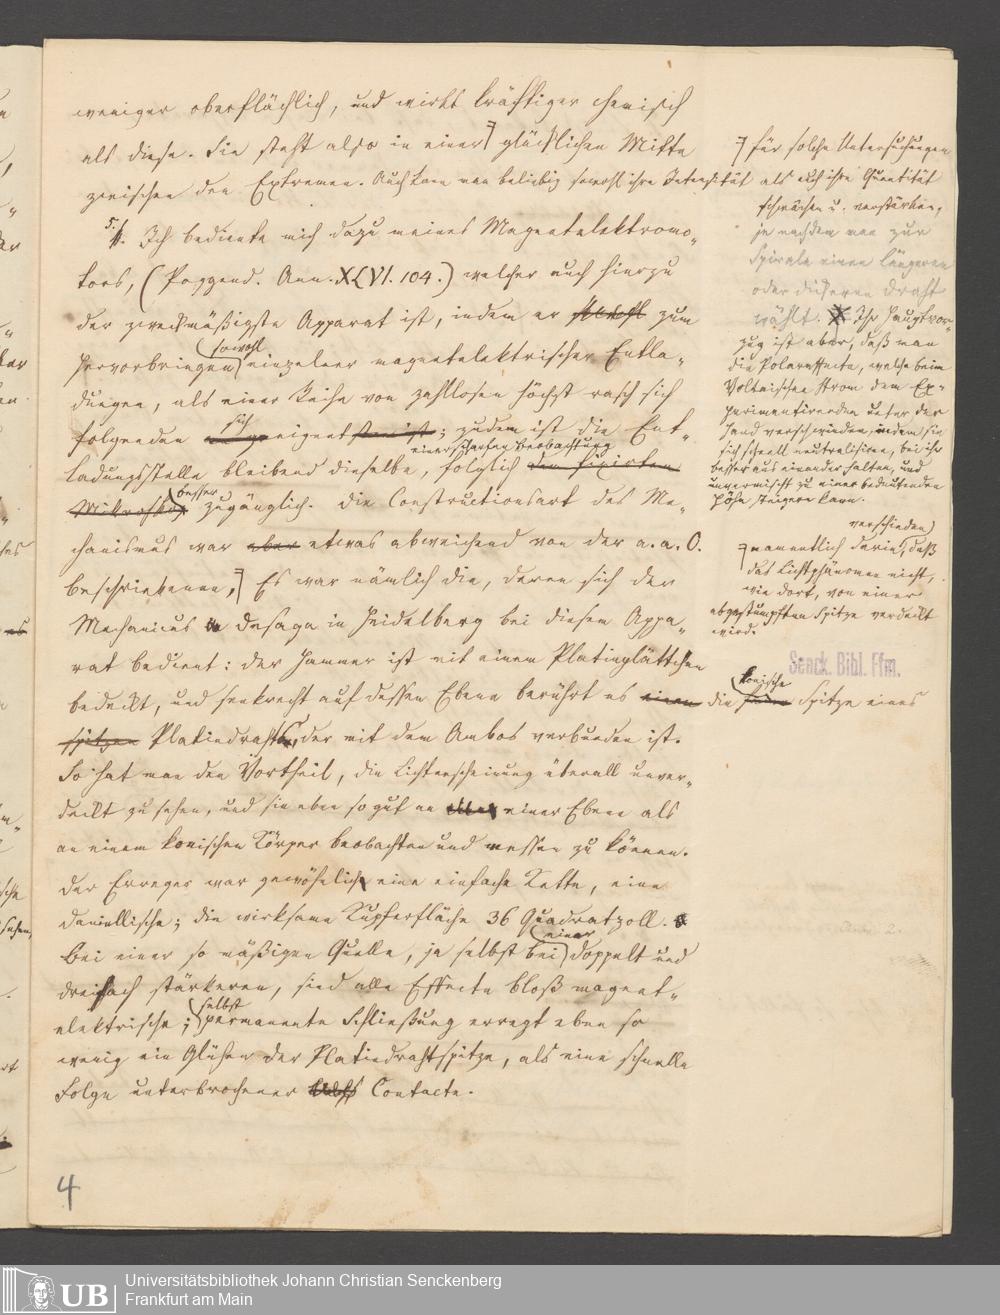 weniger oberflächlich, und wirkt kräftiger chemisch
als diese. Sie steht also in einer glücklichen Mitte
zwischen den Extremen. Auch kann man beliebig sowohl ihre Intensität als auch ihre Quantität
5. 4. Ich bediente mich dazu meines Magnetelektromo„
tors, (Poggend. Ann. XLVI. 104.) welcher auch hierzu
der zweckmäßigste Apparat ist, indem er zum
sowohl
Hervorbringen einzelner magnetelektrischer Entla„
dungen, als einer Reihe von zahllosen höchst rasch sich
sich
folgenden eignet; zudem ist die Ent„
einer scharfen Beobachtung
ladungsstelle bleibend dieselbe, folglich den fixirten
besser
Mikroskop zugänglich. Die Constructionsart des Me„
chanismus war aber etwas abweichend von der a. a. O.
beschriebenen, Es war nämlich die, deren sich der
Mechanicus Desaga in Heidelberg bei diesem Appa„
rat bedient: der Hammer ist mit einem Platinplättchen
bedeckt, und senkrecht auf dessen Ebene berührt es einen die konische Spitze eines
spitzen Platindrahts, der mit dem Ambos verbunden ist.
So hat man den Vortheil, die Lichterscheinung überall unver„
deckt zu sehen, und sie eben so gut an einer Ebene als
an einem konischen Körper beobachten und messen zu können.
Der Erreger war gewöhnlich eine einfache Kette, eine
Daniellische; die wirksame Kupferfläche 36 Quadratzoll.
einer
Bei einer so mäßigen Quelle, ja selbst bei doppelt und
dreifach stärkeren, sind alle Effecte bloß magnet„
selbst
elektrische; permanente Schließung erregt eben so
wenig ein Glühen der Platindrahtspitze, als eine schnelle
Folge unterbrochener Contacte.
4
für solche Untersuchungen
schwächen u. verstärken,
je nachdem man zur
Spirale einen längeren
oder dickeren Draht
wählt. Ihr Hauptvor„
zug ist aber, daß man
die Polareffecte, welche beim
Voltaischen Strom dem Ex„
perimentirenden unter der
Hand verschwinden, indem sie
sich schnell neutralisiren, bei ihr
besser aus einander halten, und
unvermischt zu einer bedeutenden
Höhe steigern kann.
verschieden
namentlich darin, daß
das Lichtphänomen nicht,
wie dort, von einer
abgestumpften Spitze verdeckt
wird.
Senck. Bibl. Ffm.
UB
Universitätsbibliothek Johann Christian Senckenberg
Frankfurt am Main